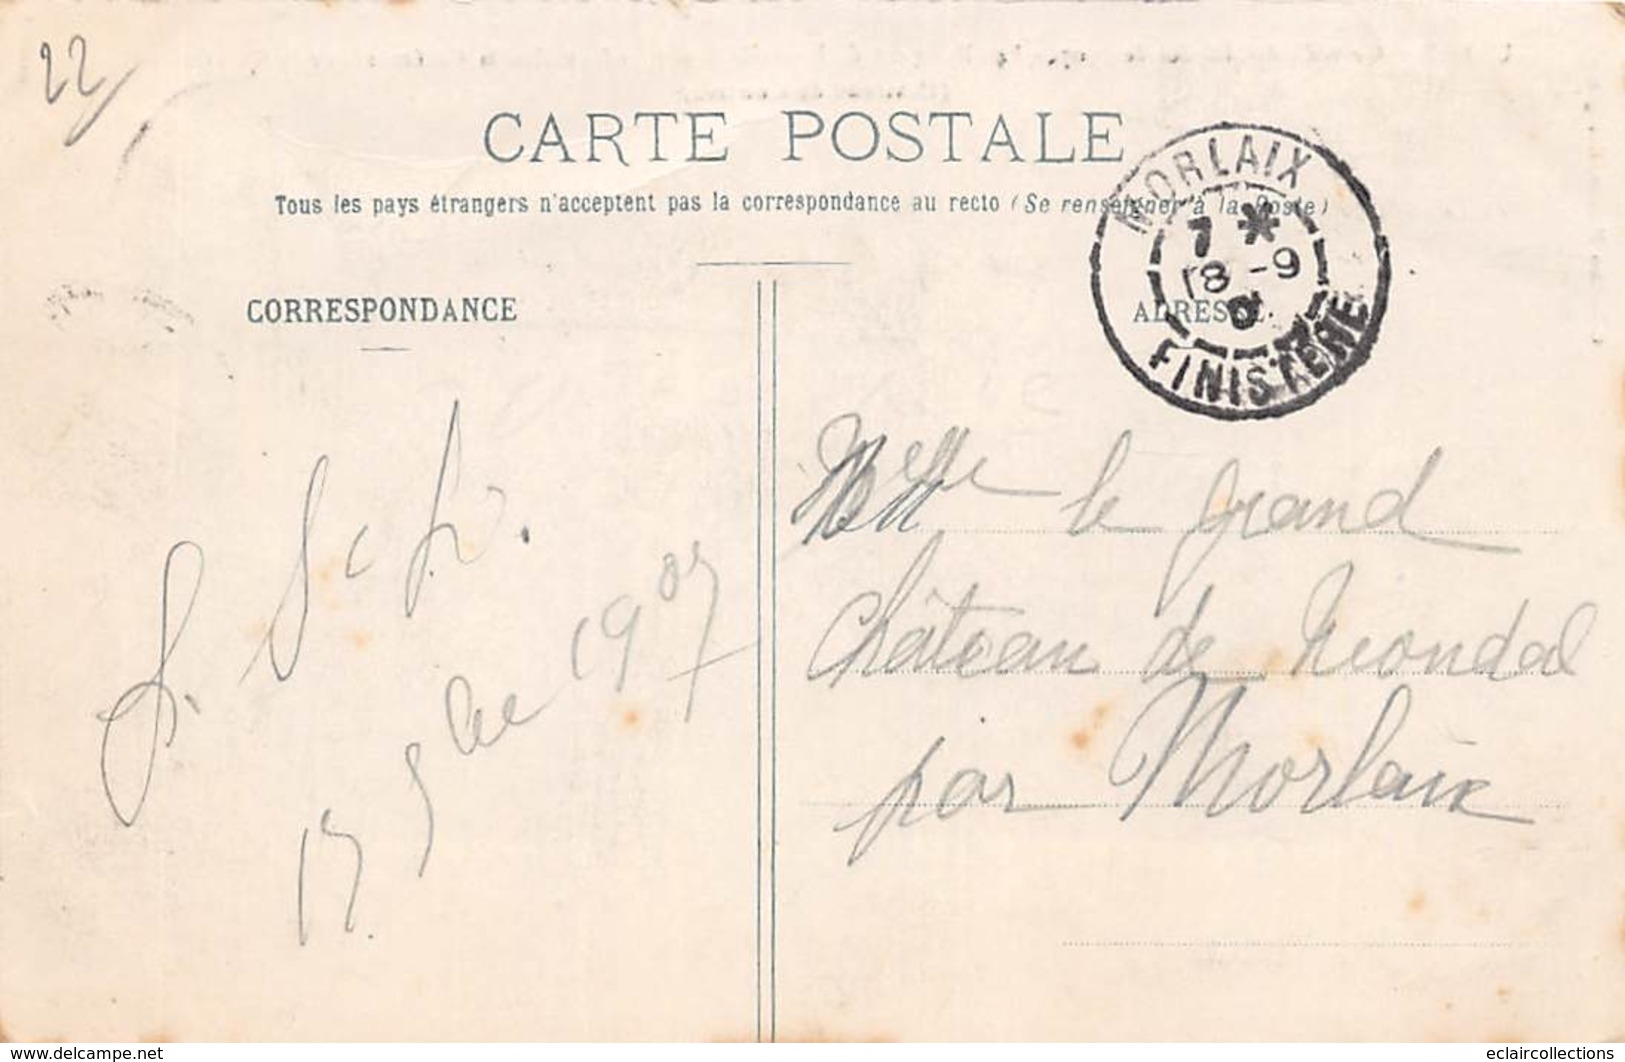 22
CARTE POSTALE
Tous les pays étrangers n'acceptent pas la correspondance au recto (Se renseigner à la Poste)
MORLAIX
7 *
18 -9
FINISTERE
CORRESPONDANCE
ADRESSE
Melle le grand
château de
par Morlaix
17 9bre 1907
www.delcampe.net
eclaircollections